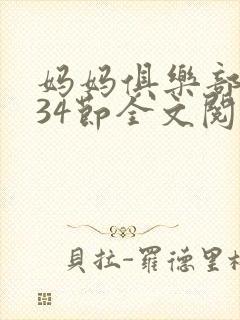 妈妈俱樂部
34節全文閱
貝拉-羅德里格